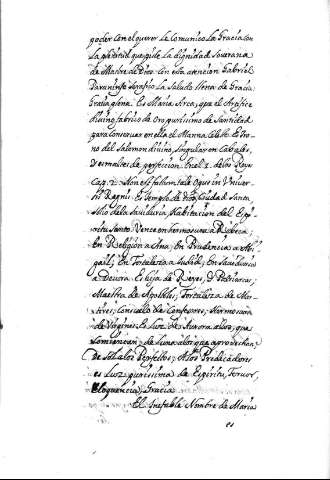 poder con el querer le comunico la Gracia con
la plenitud que pide la dignidad soverana
de Madre de Dios con esta atencion Gabriel
Paraninfo Serafico la Saludo llena de Gracia
Gratia plena. Es Maria Arca, que el Artifice
divino fabrico de Oro purissimo de Santidad
para conservar en ella el Manna Celeste. Es tro-
no del Salomon divino, singular en
esmaltes de perfeccion. En el 3. de los Reye
Cap. Non est factum tale Opus in Univer-
sis Regnis. Es templo de Dios, Ciudad Santa
Silo dela Saviduria, habitacion del Espi-
ritu Santo. Vence en hermosura a Rebeca;
En Religion a Ana; En Prudencia a Abi-
gail; En Fortaleza a Judith; En Saviduria
a Devora. Es hija de Reyes, y Patriarcas;
Maestra de Apostoles; Fortaleza de Mar-
tires; Consuelo de Confesores; Hermosura
de Virgines; Es Luz de Aurora alos, que
comienzan, de Luna alos que aprovechan,
De Sol alos Perfectos; A los Predicadores
es Luz purissima de Espiritu, Fervor,
Eloquencia, Gracia
El Inefable Nombre de Maria
es